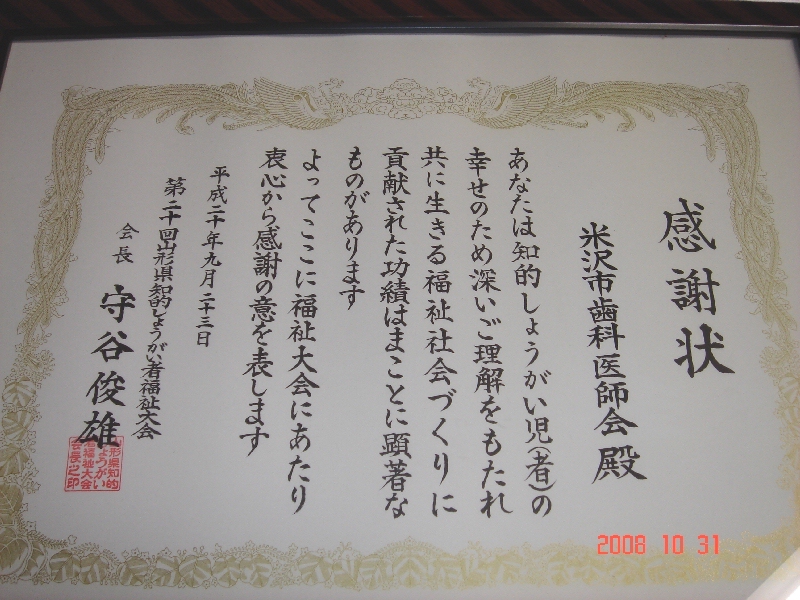 感謝状
米沢市歯科医師会殿
あなたは知的しょうがい児(者)の
幸せのため深いご理解をもたれ
共に生きる福祉社会づくりに
貢献された功績はまことに顕著な
ものがあります
よってここに福祉大会にあたり
衷心から感謝の意を表します
平成二十年九月二十三日
第二十回山形県知的しょうがい者福祉大会
会長 守谷俊雄
形県知的
ょうがい
福祉大会
会長之印
2008 10 31